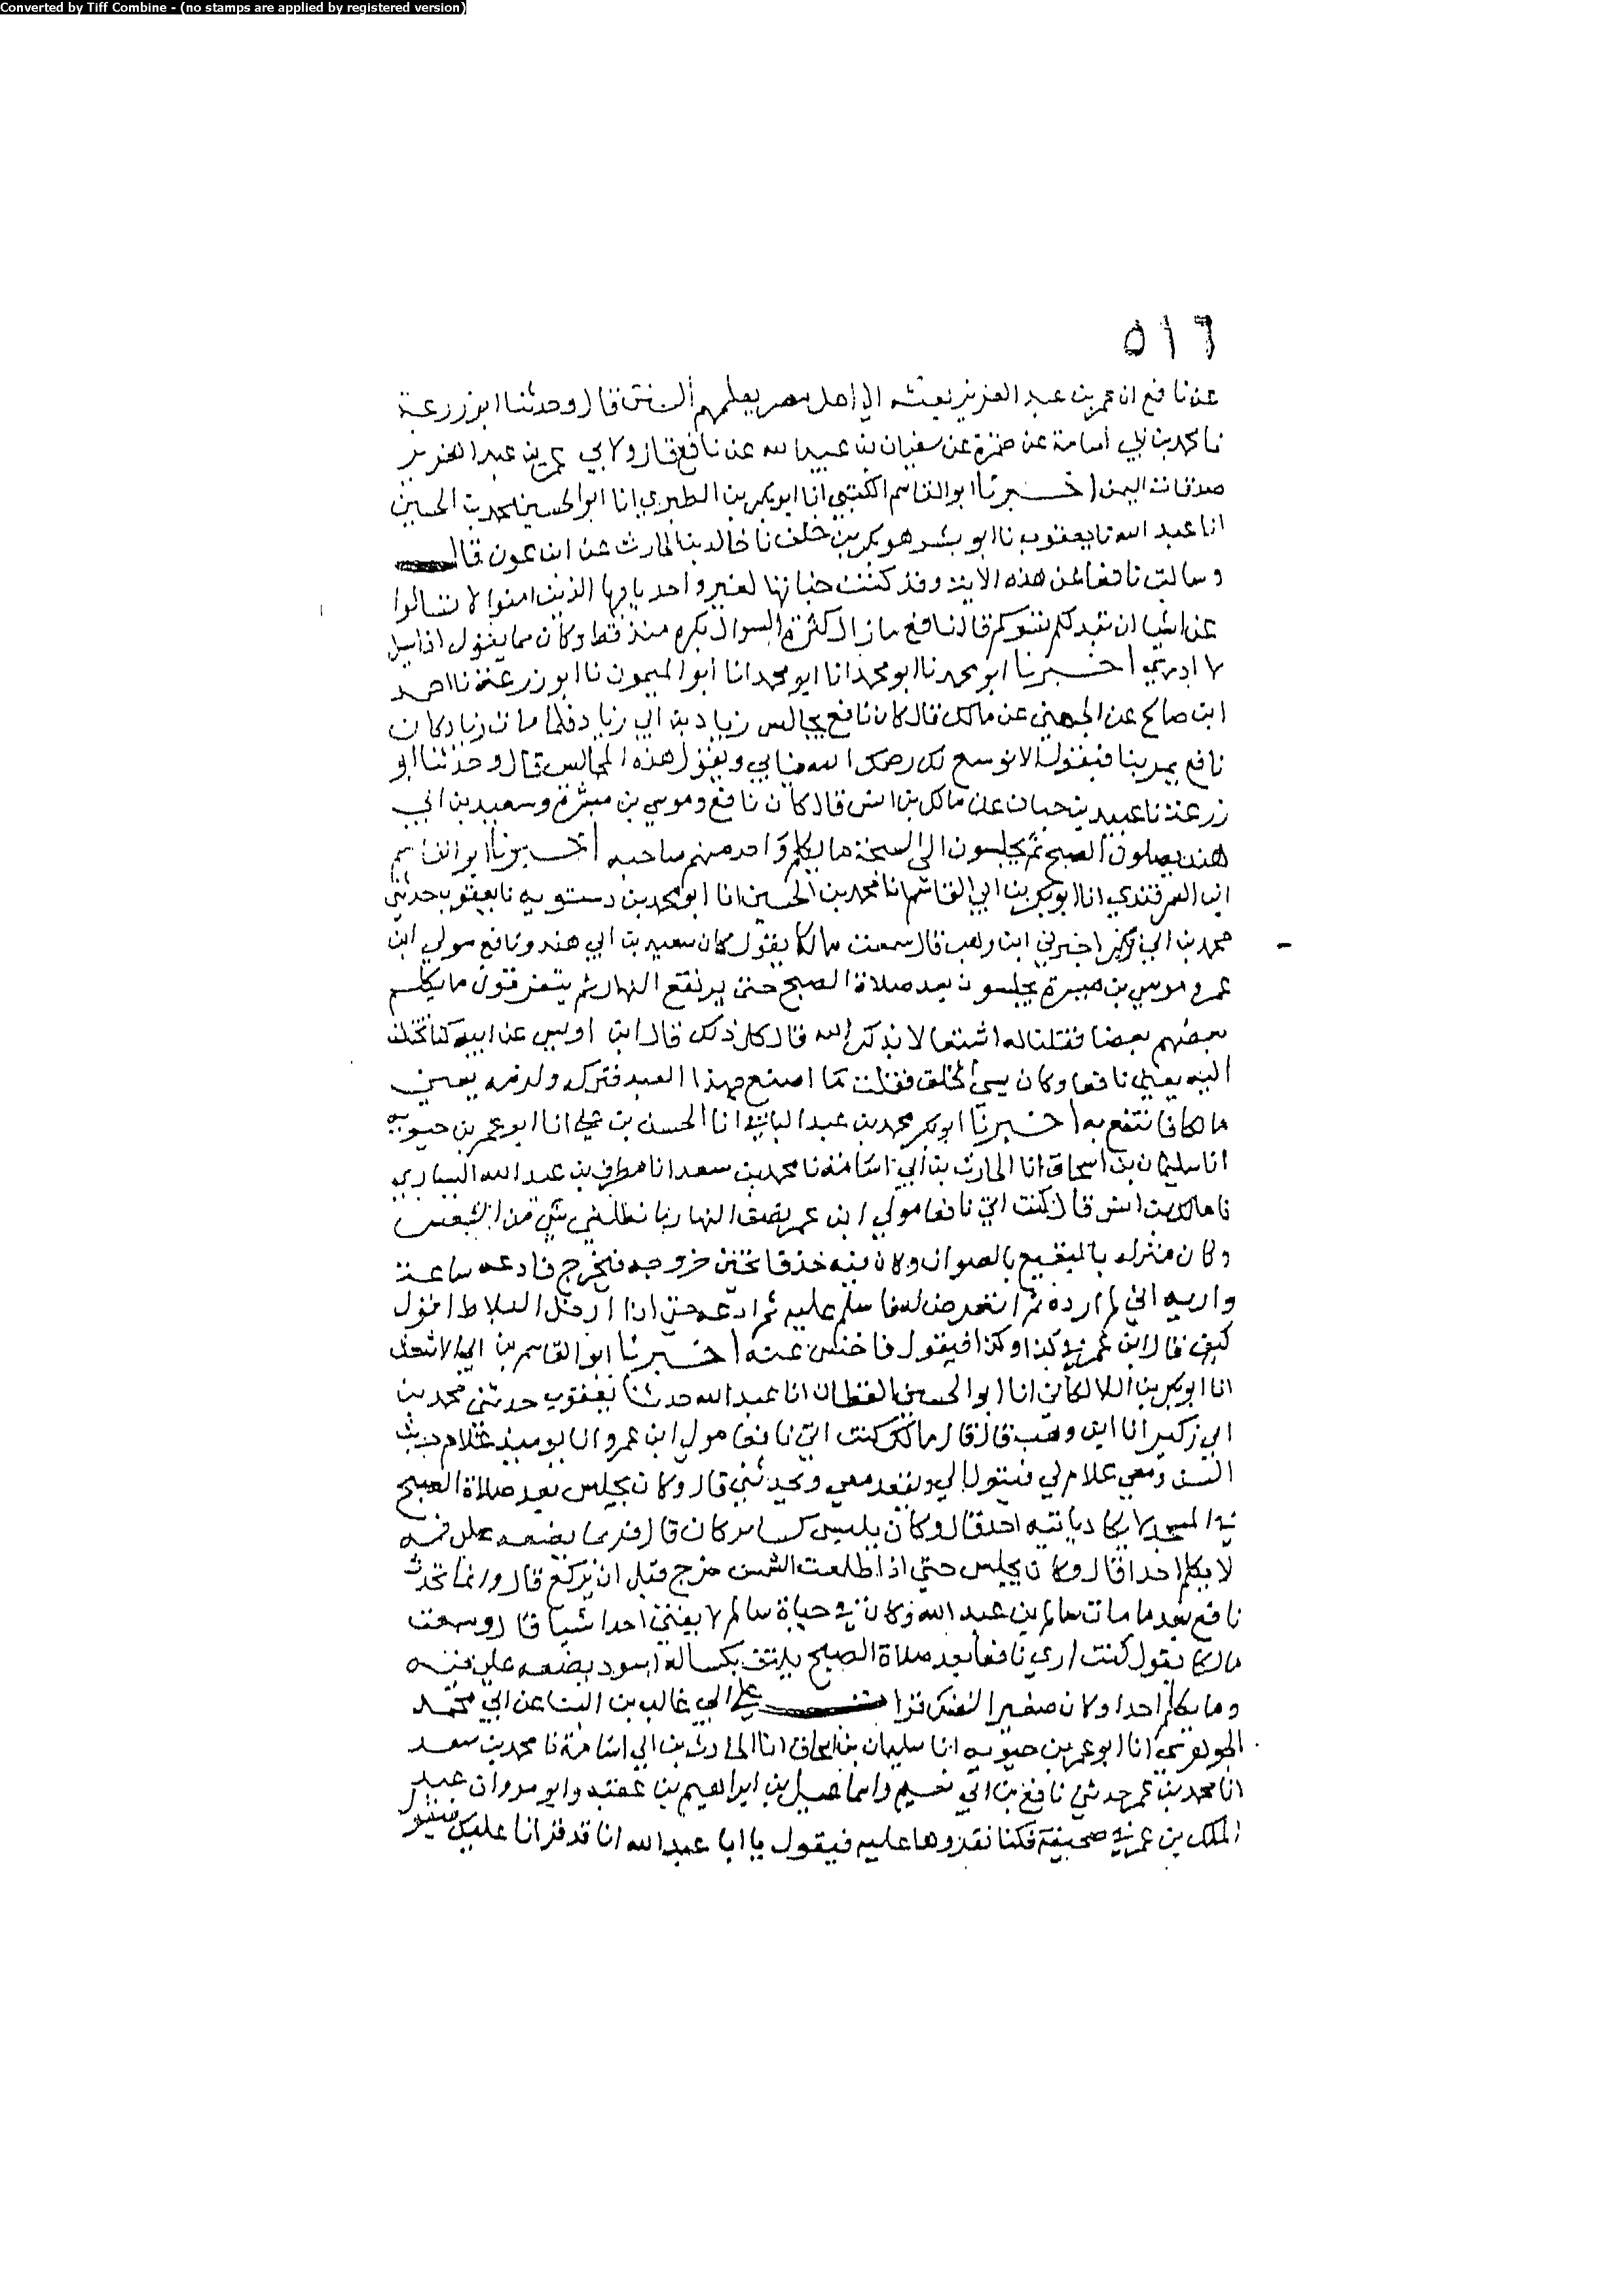 Converted by Tiff Combine - (no stamps are applied by registered version)
٥١٦
عن نافع ان عمر بن عبد العزيز بعثه الي اهل مصر يعلمهم السنن قال وحدثنا ابو زرعة
نا محمد بن ابي اسامة عن ضمرة عن سفيان بن عبيد الله عن نافع قال ولاني عمر بن عبد العزيز
صدقات اليمن اخبرنا ابو القاسم الكتبي انا ابو بكر بن الطبري انا ابو الحسين محمد بن الحسين
انا عبد الله نا يعقوب نا ابو بشر هو بكر بن خلف نا خالد بن الحارث عن ابن عون قال
وسالت نافعا عن هذه الاية وقد كنت خباتها لغير واحد يا ايها الذين امنوا لا تسالوا
عن اشيا ان تبد لكم تسوكم قال نافع ما زال كثرة السوال يكره منذ قط وكان مما يقول اذا سيل
لا ادري اخبرنا ابو محمد نا ابو محمد انا ابو محمد انا ابو الميمون نا ابو زرعة نا احمد
ابن صالح عن الجهني عن مالك قال كان نافع يجالس زياد بن ابي زياد فلما مات زياد كان
نافع يمر بنا فيقول الا نوسع لك رحمك الله فيابي ويقول هذه المجالس قال وحدثنا ابو
زرعة نا عبيد بن حبان عن مالك بن انس قال كان نافع وموسي بن ميسرة وسعيد بن ابي
هند يصلون الصبح ثم يجلسون الي السبحة ما يكلم واحد منهم صاحبه اخبرنا ابو القاسم
ابن السمرقندي انا ابو بكر بن ابي القاسم انا محمد بن الحسين انا ابو محمد بن دستويه نا يعقوب حدثني
محمد بن ابي زكير اخبرني ابن وهب قال سمعت مالكا يقول كان سعيد بن ابي هند ونافع مولي ابن
عمر وموسي بن ميسرة يجلسون بعد صلاة الصبح حتي يرتفع النهار ثم يتفرقون ما يكلم
بعضهم بعضا فقلنا له اشتغالا بذكر الله قال كل ذلك قال ابن اويس عن ابيه كنا نختلف
اليه يعني نافعا وكان سيئ الخلق فقلت ما اصنع بهذا العبد فتركه ولزمه يعني
مالكا فانتفع به اخبرنا ابو بكر محمد بن عبد الباقي انا الحسن بن علي انا ابو عمر بن حيويه
انا سليمان بن اسحاق انا الحارث بن ابي اسامة نا محمد بن سعد انا مطرف بن عبد الله اليساري
نا مالك بن انس قال كنت اتي نافعا مولي ابن عمر نصف النهار ما تظلني شي من الشمس
وكان منزله بالبقيع بالصوان وكان فيه حد فاتحين خروجه فيخرج فادعه ساعة
واريه اني لم ارده ثم اتعرض له فاسلم عليه ثم ادعه حتي اذا دخل البلاط اقول
كيف قال ابن عمر في كذا وكذا فيقول فاخنس عنه اخبرنا ابو القاسم بن ابي الاشعث
انا ابو بكر بن اللالكائي انا ابو الحسين القطان انا عبد الله حدثنا يعقوب حدثني محمد بن
ابي زكير انا ابن وهب قال قال مالك كنت اتي نافعا مولي ابن عمر وانا يوميذ غلام حديث
السن ومعي غلام لي فينزل الي ويقعد معي ويحدثني قال وكان يجلس بعد صلاة الصبح
في المسجد لا يكاد ياتيه احد قال وكان يلبس كسا مركان قال فربما يضعه علي فمه
لا يكلم احدا قال وكان يجلس حتي اذا طلعت الشمس خرج قبل ان يركع قال وانما تحدث
نافع بعد ما مات سالم بن عبد الله وكان في حياة سالم لا يفتي احدا شيا قال وسمعت
مالكا يقول كنت اري نافعا بعد صلاة الصبح يلتف بكسا له اسود يضعه علي فيه
وما يكلم احدا وكان صغير النفس قرات علي ابي غالب بن البنا عن ابي محمد
الجوهري انا ابو عمر بن حيويه انا سليمان بن اسحاق انا الحارث بن ابي اسامة نا محمد بن سعد
انا محمد بن عمر حدثني نافع بن ابي نعيم واسماعيل بن ابراهيم بن عقبة وابو مروان عبد
الملك بن عمر في صحيفة فكنا نقروها عليه فيقول يا ابا عبد الله انا قد قرانا عليك فنقول